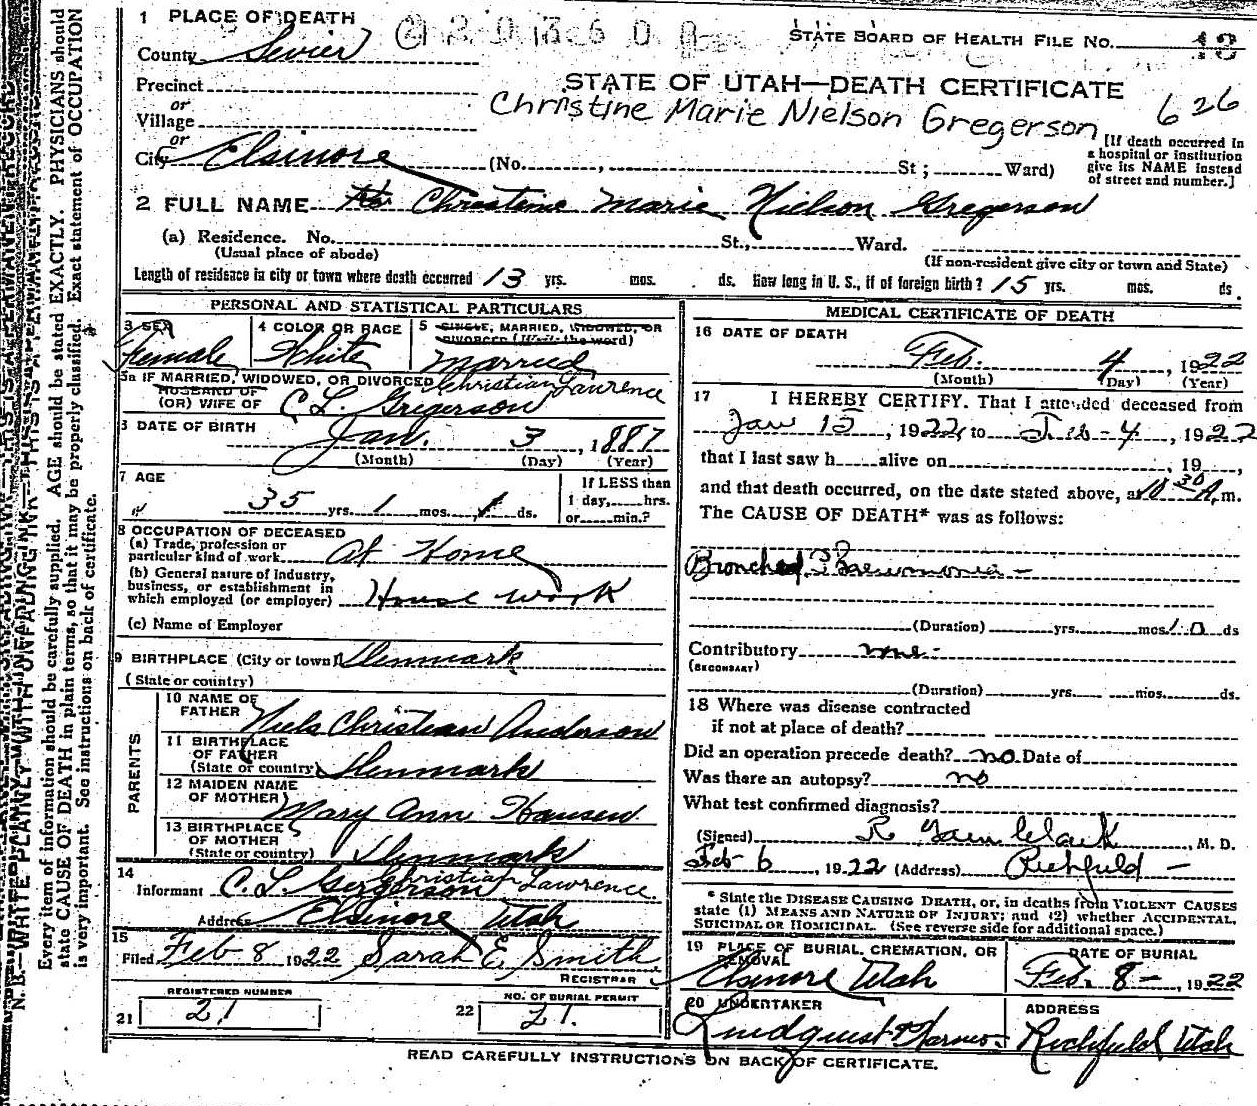 1 PLACE OF DEATH
County Sevier
STATE BOARD OF HEALTH FILE NO. 13
Precinct
or
Village
or
City Elsinore (No. , St ; Ward)
STATE OF UTAH—DEATH CERTIFICATE
Christine Marie Nielson Gregerson 626
[If death occurred in
a hospital or institution
give its NAME instead
of street and number.]
2 FULL NAME Christine Marie Nielson Gregerson
(a) Residence. No. St., Ward.
(Usual place of abode)
(If non-resident give city or town and State)
Length of residence in city or town where death occurred 13 yrs. mos. ds. How long in U. S., if of foreign birth? 15 yrs. mos. ds.
PERSONAL AND STATISTICAL PARTICULARS
3 SEX
Female
4 COLOR OR RACE
White
5 SINGLE, MARRIED, WIDOWED, OR
DIVORCED (Write the word)
Married
5a IF MARRIED, WIDOWED, OR DIVORCED Christian Lawrence
HUSBAND OF
(OR) WIFE OF C L. Gregerson
6 DATE OF BIRTH
Jan. 3, 1887
(Month) (Day) (Year)
7 AGE
35 yrs. 1 mos. 1 ds.
If LESS than
1 day, hrs.
or min.?
8 OCCUPATION OF DECEASED
(a) Trade, profession or
particular kind of work At Home
(b) General nature of industry,
business, or establishment in
which employed (or employer) House work
(c) Name of Employer
9 BIRTHPLACE (City or town) Denmark
(State or country)
PARENTS
10 NAME OF
FATHER Niels Christian Anderson
11 BIRTHPLACE
OF FATHER
(State or country) Denmark
12 MAIDEN NAME
OF MOTHER Mary Ann Hansen
13 BIRTHPLACE
OF MOTHER
(State or country) Denmark
14
Informant C. L. Gergerson Christian Lawrence
Address Elsinore Utah
15
Filed Feb 8 1922 Sarah E. Smith
REGISTRAR
REGISTERED NUMBER
21 21
NO. OF BURIAL PERMIT
22 21.
MEDICAL CERTIFICATE OF DEATH
16 DATE OF DEATH
Feb. 4, 1922
(Month) (Day) (Year)
17 I HEREBY CERTIFY. That I attended deceased from
Jan 15, 1922 to Feb-4, 1922
that I last saw h alive on , 19 ,
and that death occurred, on the date stated above, at 10 30 A. m.
The CAUSE OF DEATH* was as follows:
Bronchial Pneumonia -
(Duration) yrs. mos. 10 ds
Contributory none-
(SECONDARY)
(Duration) yrs. mos. ds.
18 Where was disease contracted
if not at place of death?
Did an operation precede death? no Date of
Was there an autopsy? no
What test confirmed diagnosis?
(Signed) R , M. D.
Feb 6, 1922 (Address) Richfield -
* State the DISEASE CAUSING DEATH, or, in deaths from VIOLENT CAUSES
state (1) MEANS AND NATURE OF INJURY; and (2) whether ACCIDENTAL,
SUICIDAL OR HOMICIDAL. (See reverse side for additional space.)
19 PLACE OF BURIAL, CREMATION, OR
REMOVAL
Elsinore Utah
DATE OF BURIAL
Feb. 8-, 1922
20 UNDERTAKER
Lindquist &
ADDRESS
Richfield Utah
READ CAREFULLY INSTRUCTIONS ON BACK OF CERTIFICATE.
N. B.—WRITE PLAINLY WITH UNFADING INK—THIS IS A PERMANENT RECORD
Every item of information should be carefully supplied. AGE should be stated EXACTLY. PHYSICIANS should
state CAUSE OF DEATH in plain terms, so that it may be properly classified. Exact statement of OCCUPATION
is very important. See instructions on back of certificate.